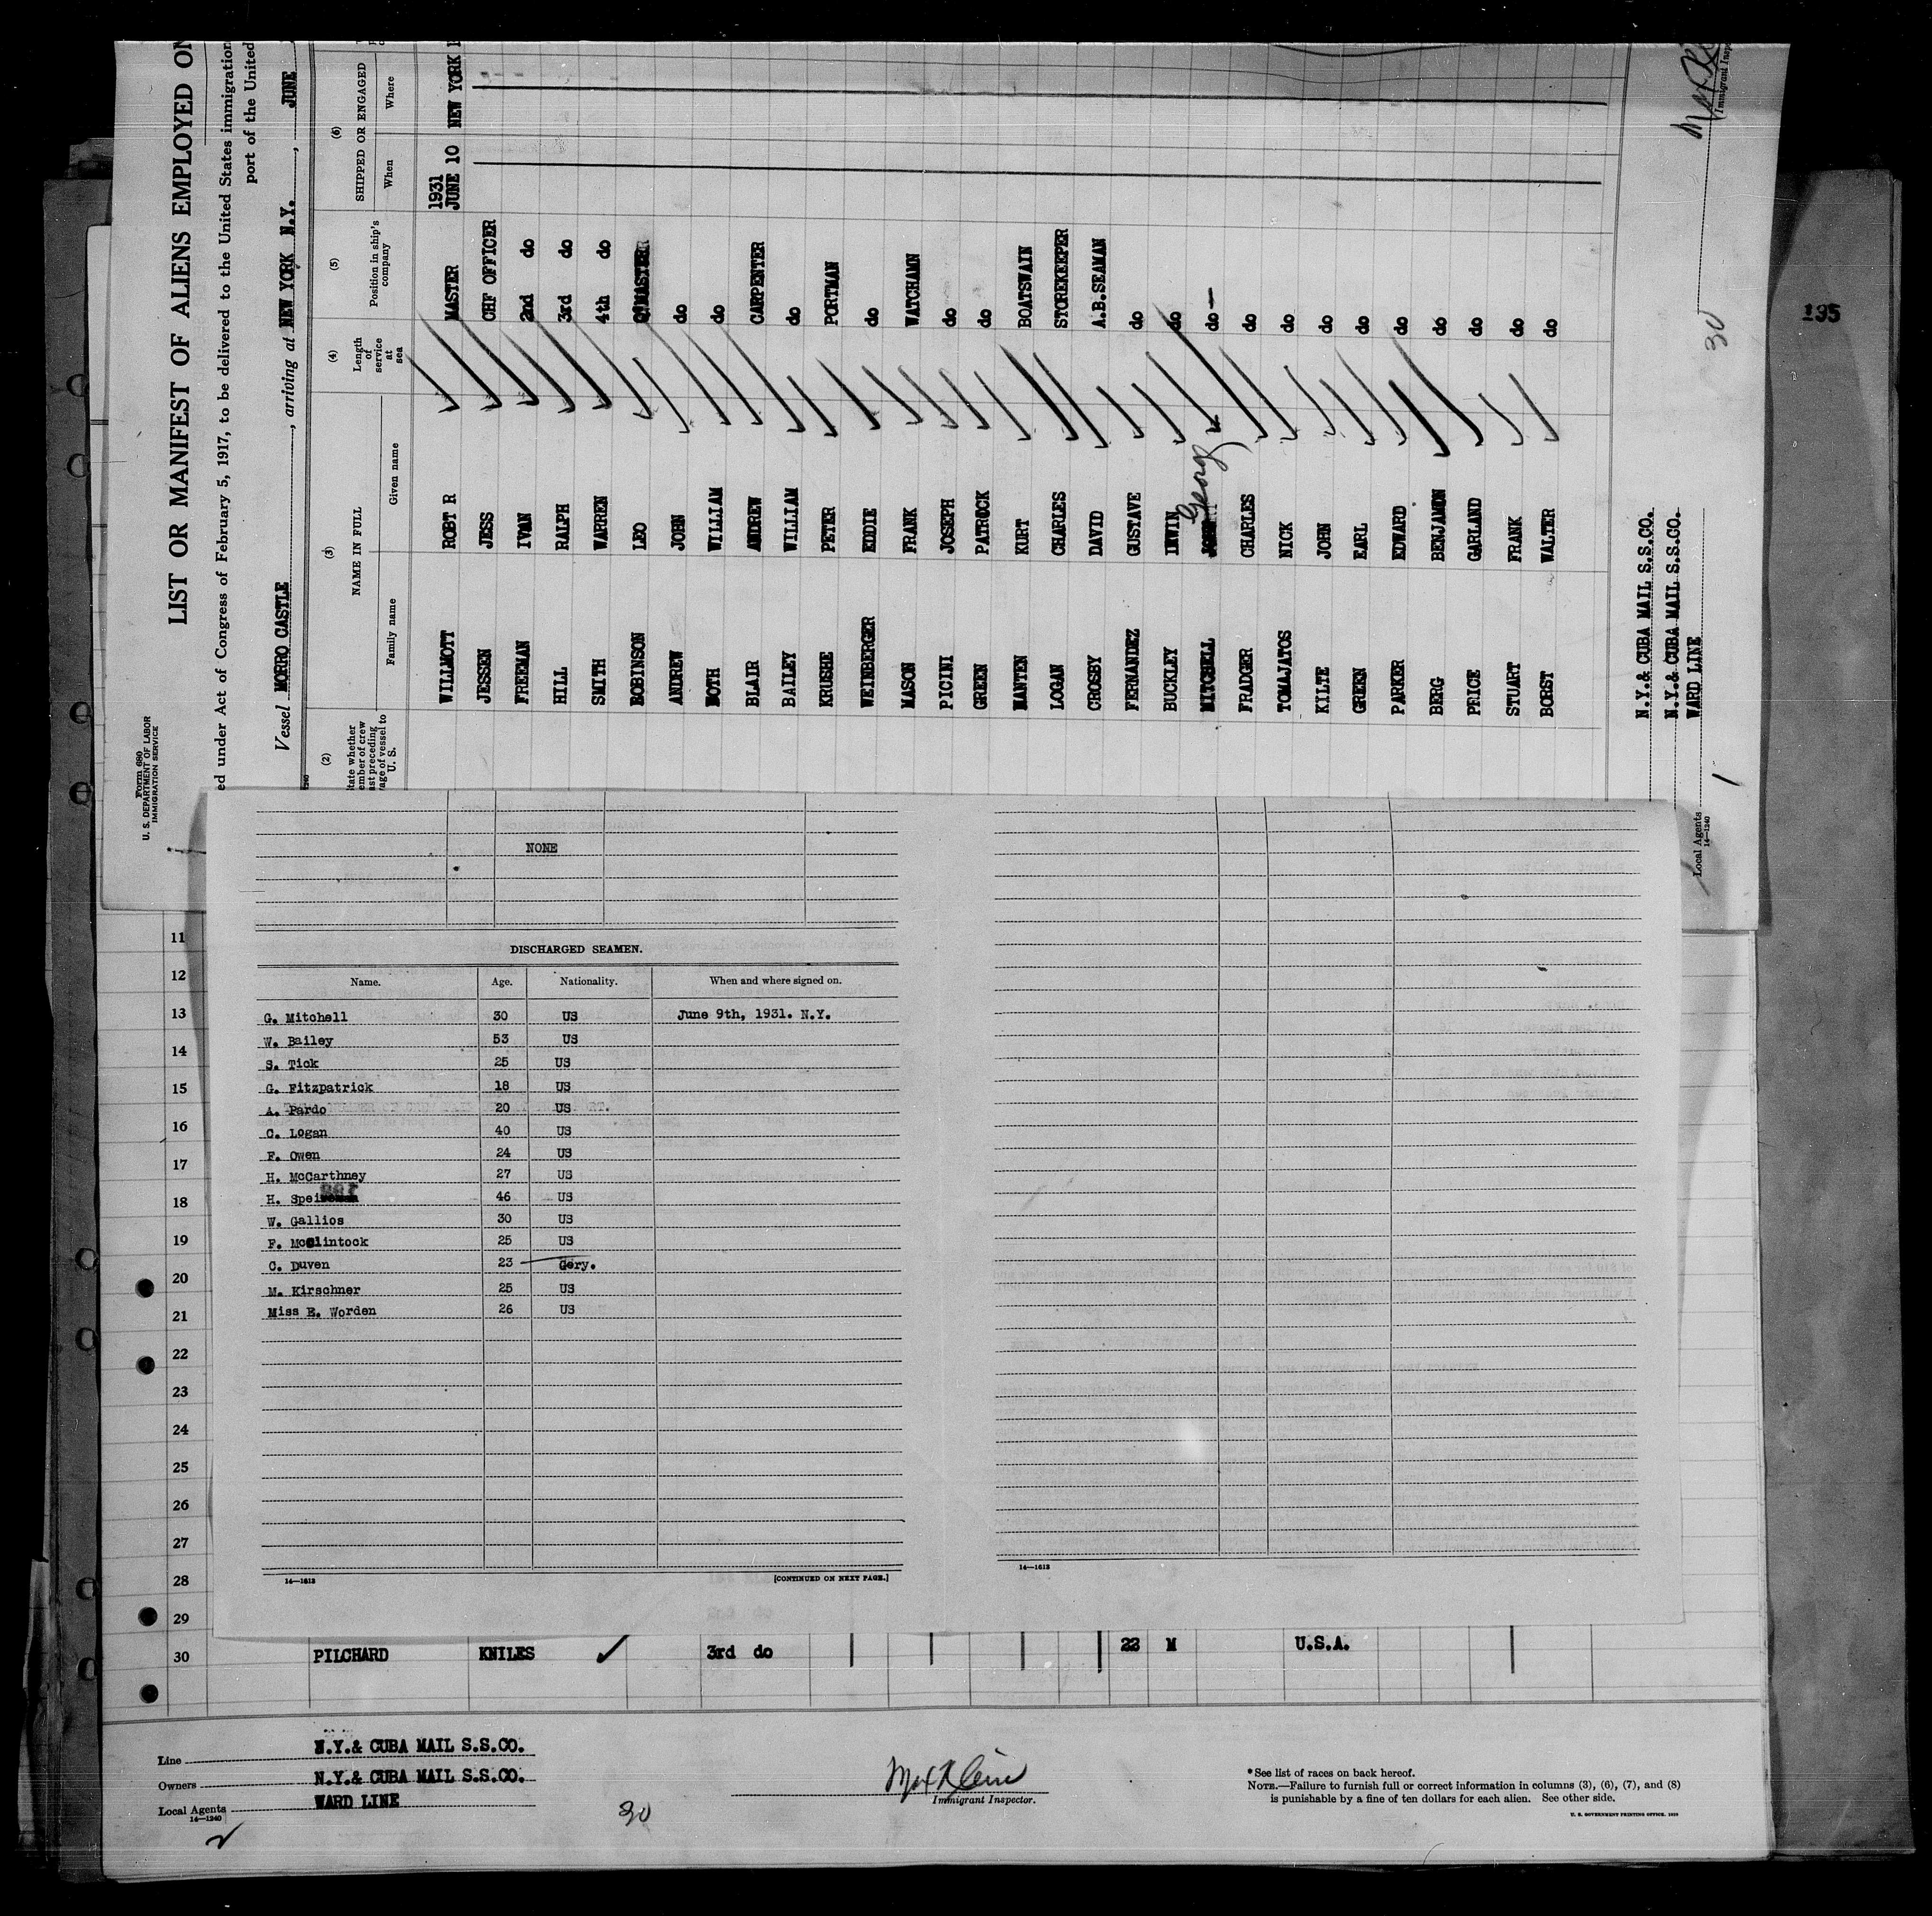 Form 680
U. S. DEPARTMENT OF LABOR
IMMIGRATION SERVICE
LIST OR MANIFEST OF ALIENS EMPLOYED ON
ed under Act of Congress of February 5, 1917, to be delivered to the United States immigration
port of the United
Vessel MORRO CASTLE, arriving at NEW YORK N.Y., JUNE
(2) (3) (4) (5) (6)
tate whether
ember of crew
ast preceding
age of vessel to
U. S.
NAME IN FULL
Family name Given name
Length
of
service
at
sea
Position in ship's
company
SHIPPED OR ENGAGED
When Where
1931
WILLMOTT ROBT R MASTER JUNE 10 NEW YORK
JESSEN JESS CHF OFFICER
FREEMAN IVAN 2nd do
HILL RALPH 3rd do
SMITH WARREN 4th do
ROBINSON LEO QTMASTER
ANDREW JOHN do
MOTH WILLIAM do
BLAIR ANDREW CARPENTER
BAILEY WILLIAM do
KRUSHE PETER PORTMAN
WEINBERGER EDDIE do
MASON FRANK WATCHAMN
PICINI JOSEPH do
GREEN PATRUCK do
MANTEN KURT BOATSWAIN
LOGAN CHARLES STOREKEEPER
CROSBY DAVID A.B.SEAMAN
FERNANDEZ GUSTAVE do
BUCKLEY IRWIN do
MITCHELL Georg do
FRADGER CHARLES do
TOMAJATOS NICK do
KILTE JOHN do
GREEN EARL do
PARKER EDWARD do
BERG BENJAMON do
PRICE GARLAND do
STUART FRANK do
BORST WALTER do
N.Y.& CUBA MAIL S.S.CO.
N.Y.& CUBA MAIL S.S.CO.
WARD LINE
Local Agents
14—1240
30
Immigrant Inspe
195
NONE
DISCHARGED SEAMEN.
Name. Age. Nationality. When and where signed on.
G. Mitchell 30 US June 9th, 1931. N.Y.
W. Bailey 53 US
S. Tick 25 US
G. Fitzpatrick 18 US
A. Pardo 20 US
C. Logan 40 US
F. Owen 24 US
H. McCarthney 27 US
H. Spei 46 US
W. Gallios 30 US
F. McClintock 25 US
C. Duven 23 Gery.
M. Kirschner 25 US
Miss E. Worden 26 US
14—1613 [CONTINUED ON NEXT PAGE.]
14—1613
11
12
13
14
15
16
17
18
19
20
21
22
23
24
25
26
27
28
29
30 PILCHARD KNILES 3rd do 22 M U.S.A.
Line N.Y.& CUBA MAIL S.S.CO.
Owners N.Y.& CUBA MAIL S.S.CO.
Local Agents WARD LINE
14—1240
2
30
Max Klein
Immigrant Inspector.
*See list of races on back hereof.
NOTE.—Failure to furnish full or correct information in columns (3), (6), (7), and (8)
is punishable by a fine of ten dollars for each alien. See other side.
U. S. GOVERNMENT PRINTING OFFICE